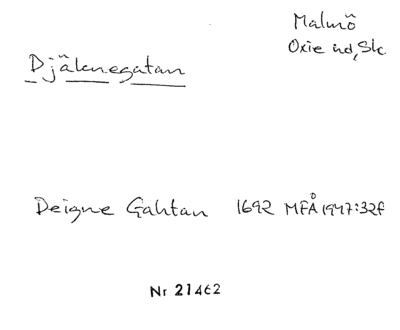 Malmö
Oxie hd, Sk
Djäknegatan
Deigne Gahtan 1692 MFÅ 1947:32f
Nr 21462